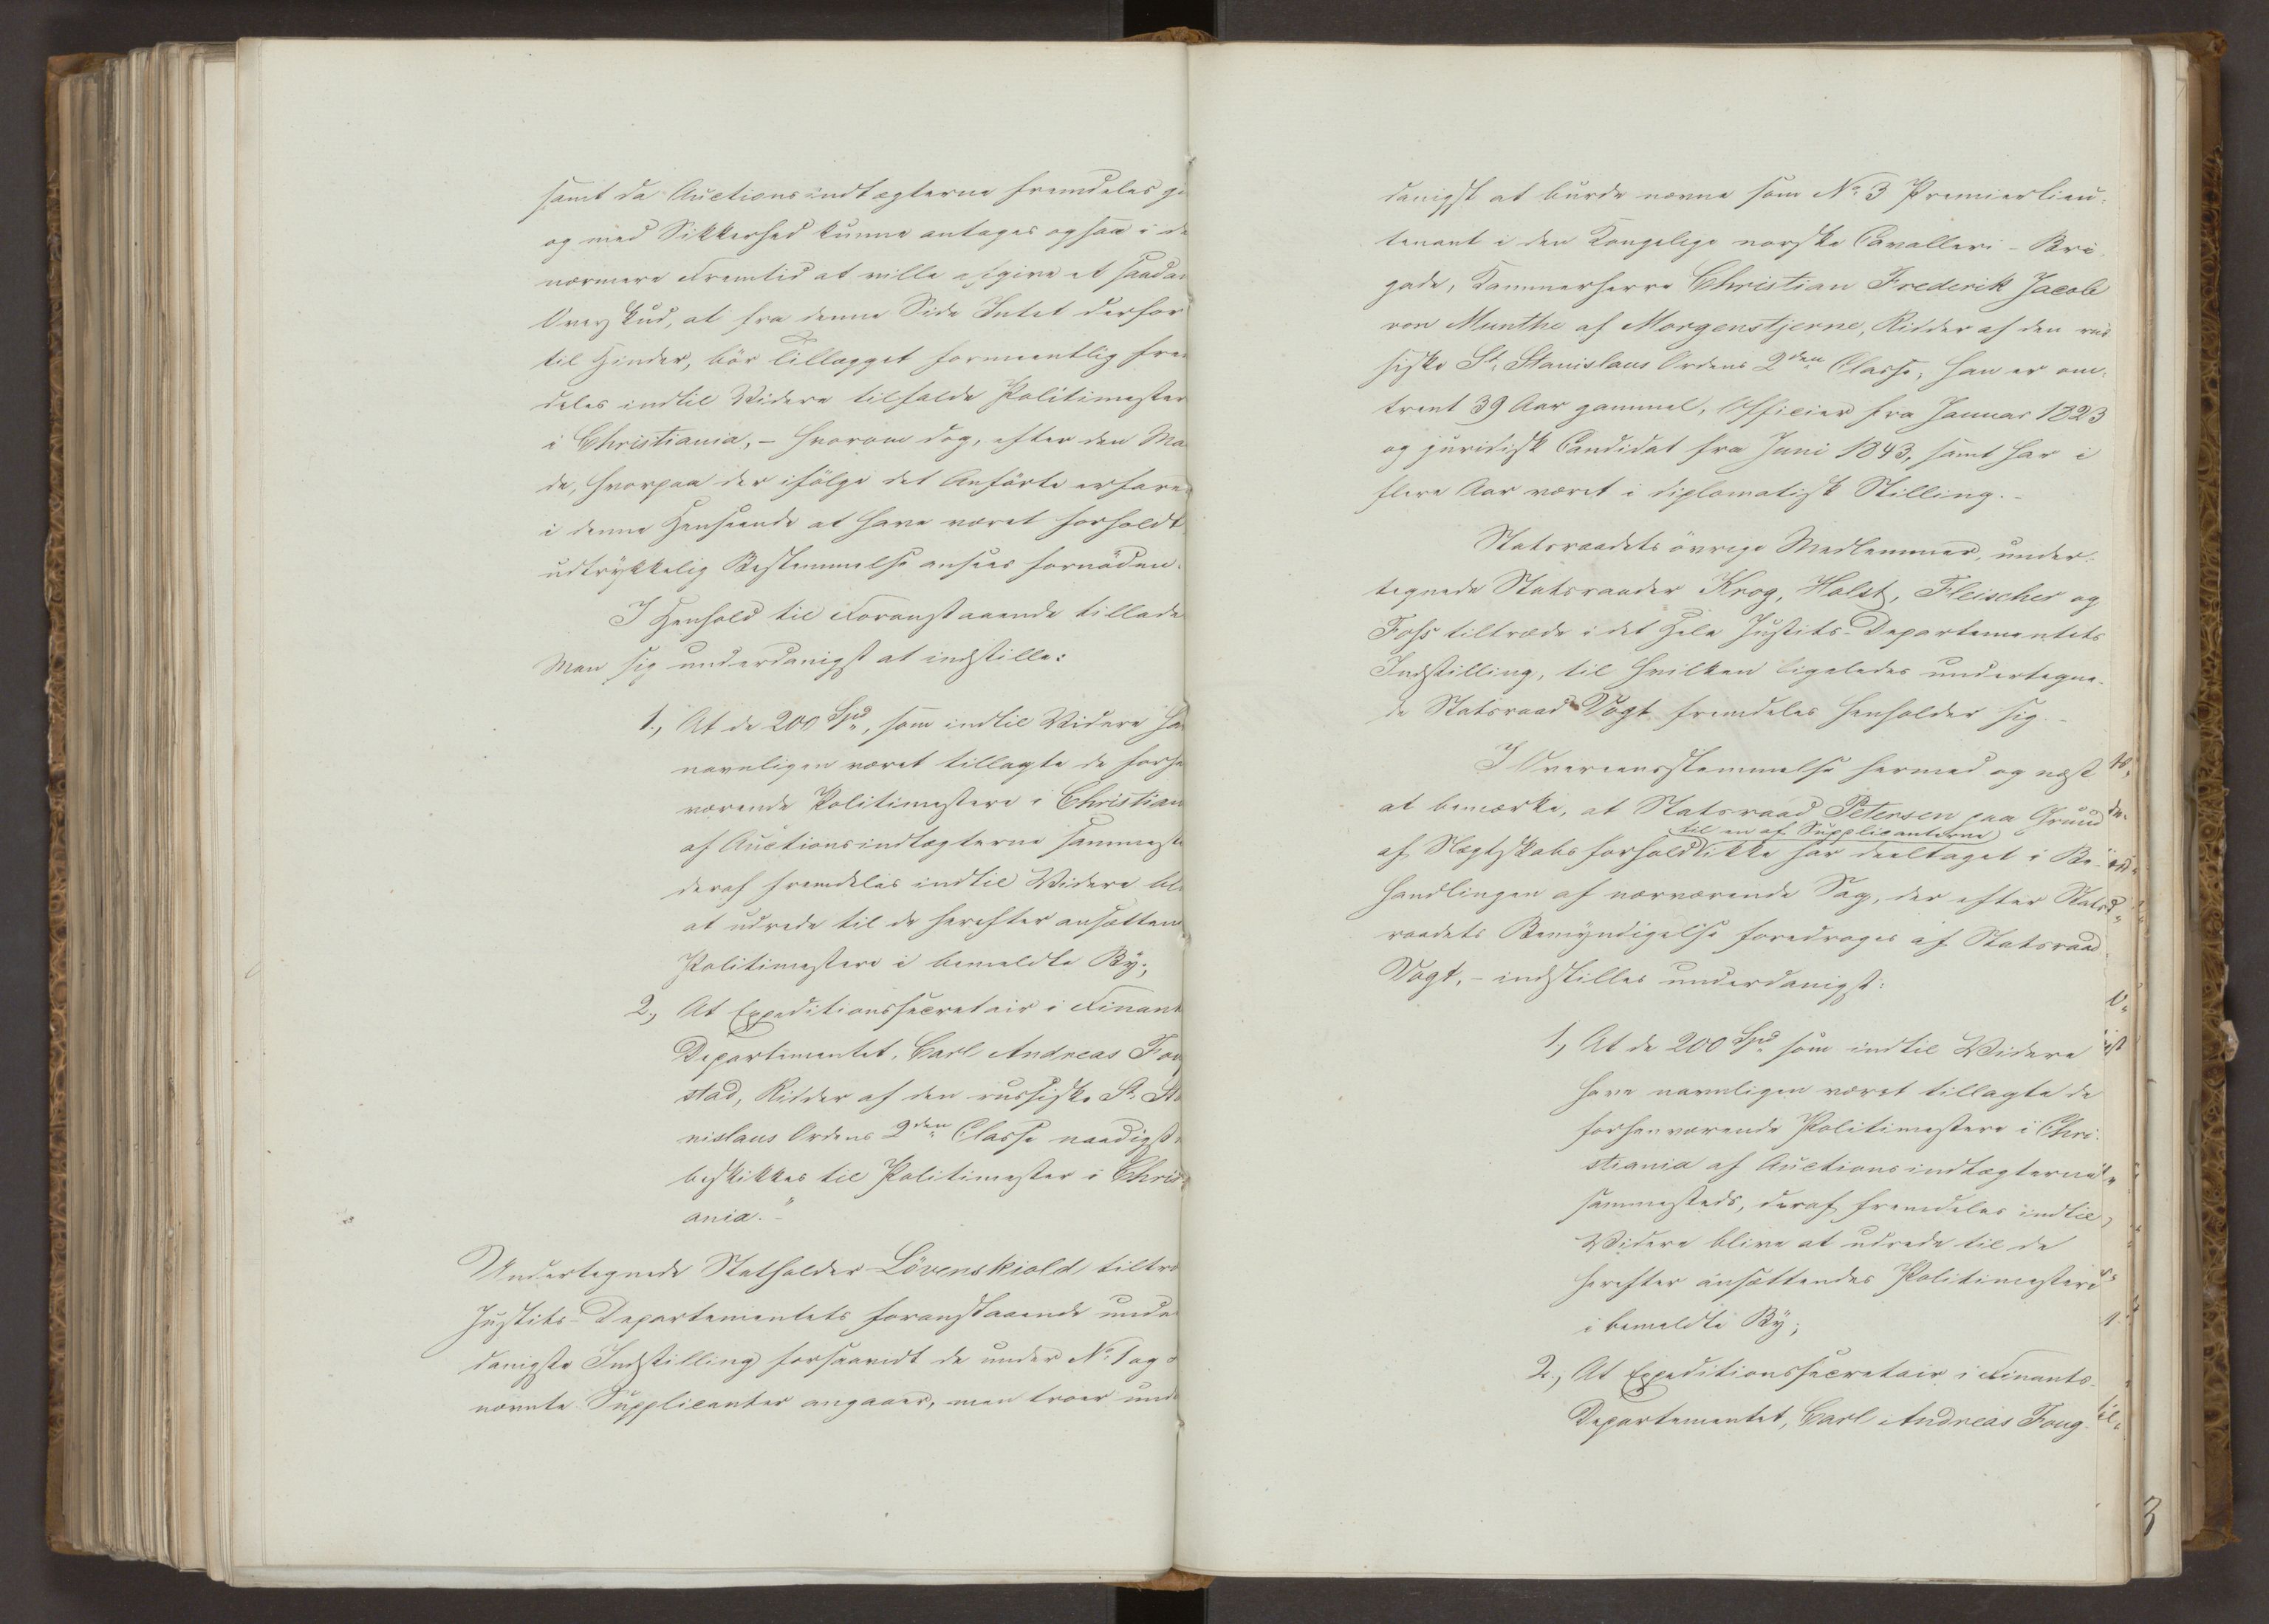 samt da Auctionsindtægterne fremdeles
og med Sikkerhed kunne antages ogsaa i
nærmere Fremtid at ville afgive et saadan
Overskud, at fra denne Side Intet derfor
til Hinder, bör Tillægget formeentlig
deles indtil Videre tilfalde Politimester
i Christiania, – hvorom dog, efter den
de, hvorpaa der ifölge det Anförte erfares
i denne Henseende at have været forholdt,
udtrykkelig Bestemmelse ansees fornöden.
I Henhold til Foranstaaende tillader
Man sig underdanigst at indstille:
1., At de 200 Spd, som indtil Videre
navnligen været tillagte de
værende Politimestere i Christian
af Auctionsindtægterne sammest
deraf fremdeles indtil Videre
at udrede til de herefter ansætten
Politimestere i bemeldte By;
2., At Expeditionssecretair i Finant
Departementet, Carl Andreas
stad, Ridder af den russiske St. Sta
nislaus Ordens 2den Classe naadigst
beskikkes til Politimester i Christi
ania."–
Undertegnede Statholder Lövenskiold
Justits-Departementets foranstaaende under
danigste Indstilling forsaavidt de under No 1 og
nævnte Supplicanter angaaer, men troer
danigst at burde nævne som No 3 Premierlieu-
tenant i den Kongelige norske Cavalleri-Bri-
gade, Kammerherre Christian Frederik Jacob
von Munthe af Morgenstjerne, Ridder af den rus-
siske St. Stanislaus Ordens 2den Classe; han er om-
trent 39 Aar gammel, Officier fra Januar 1823
og juridisk Candidat fra Juni 1843, samt har i
flere Aar været i diplomatisk Stilling.–
Statsraadets övrige Medlemmer, under-
tegnede Statsraader Krog, Holst, Fleischer og
Foss tiltræde i det Hele Justits-Departementets
Indstilling, til hvilken ligeledes undertegne-
de Statsraad Vogt fremdeles henholder sig.–
I Overeensstemmelse hermed og næst
at bemærke, at Statsraad Petersen paa Grund
til en af Supplicanterne
af Slægtskabsforhold ikke har deeltaget i Be-
handlingen af nærværende Sag, der efter Stats-
raadets Bemyndigelse foredrages af Statsraad
Vogt, – indstilles underdanigst:
1., At de 200 Spd som indtil Videre
have navnligen været tillagte de
forhenværende Politimestere i Chri-
stiania af Auctionsindtægterne
sammesteds, deraf fremdeles indtil
Videre blive at udrede til de
herefter ansættendes Politimestere
i bemeldte By;
2., At Expeditionssecretair i Finants-
Departementet, Carl Andreas Foug-